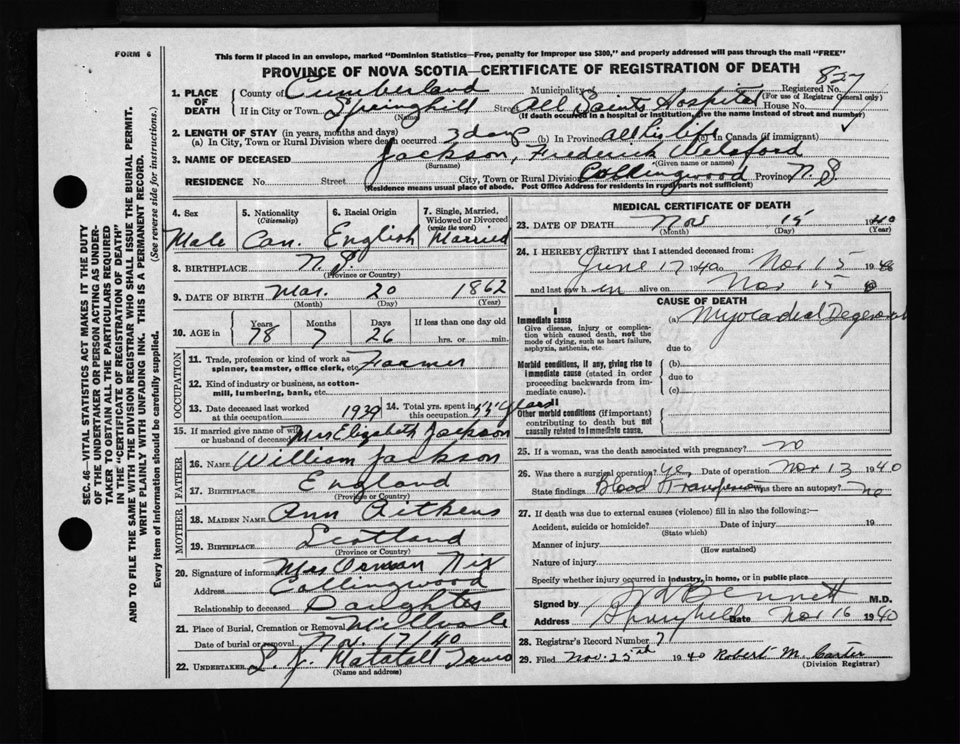 FORM 6
This form if placed in an envelope, marked "Dominion Statistics—Free, penalty for improper use $300," and properly addressed will pass through the mail "FREE"
PROVINCE OF NOVA SCOTIA—CERTIFICATE OF REGISTRATION OF DEATH
827
1. PLACE OF DEATH County of Cumberland Municipality of Registered No. (For use of Registrar General only)
If in City or Town Springhill (Name) Street All Saints Hospital House No.
(If death occurred in a hospital or institution, give the name instead of street and number)
2. LENGTH OF STAY (in years, months and days)
(a) In City, Town or Rural Division where death occurred 3 days (b) In Province all his life (c) In Canada (if immigrant)
3. NAME OF DECEASED Jackson, Frederick Welsford
(Surname) (Given name or names)
RESIDENCE No. Street City, Town or Rural Division Collingwood Province N.S.
(Residence means usual place of abode. Post Office Address for residents in rural parts not sufficient)
4. Sex Male
5. Nationality (Citizenship) Can.
6. Racial Origin English
7. Single, Married, Widowed or Divorced (write the word) Married
8. BIRTHPLACE N.S.
(Province or Country)
9. DATE OF BIRTH Mar. 20 1862
(Month) (Day) (Year)
10. AGE in Years 78 Months 7 Days 26 If less than one day old hrs. or min.
OCCUPATION
11. Trade, profession or kind of work as spinner, teamster, office clerk, etc. Farmer
12. Kind of industry or business, as cotton-mill, lumbering, bank, etc.
13. Date deceased last worked at this occupation 1939
14. Total yrs. spent in this occupation 55 years
15. If married give name of wife or husband of deceased Mrs Elizabeth Jackson
FATHER
16. Name William Jackson
17. BIRTHPLACE England
(Province or Country)
MOTHER
18. MAIDEN NAME Ann Aitkens
19. BIRTHPLACE Scotland
(Province or Country)
20. Signature of informant Mrs Orman Nix
Address Collingwood
Relationship to deceased Daughter
21. Place of Burial, Cremation or Removal Millvale
Date of burial or removal Nov. 17/40
22. UNDERTAKER L. J. Matatall
(Name and address)
MEDICAL CERTIFICATE OF DEATH
23. DATE OF DEATH Nov 15 1940
(Month) (Day) (Year)
24. I HEREBY CERTIFY that I attended deceased from:
June 17 1940 to Nov 15 1940
and last saw him alive on Nov 15
CAUSE OF DEATH
I
Immediate cause (a) Myocadial Degeneration
Give disease, injury or complication which caused death, not the mode of dying, such as heart failure, asphyxia, asthenia, etc.
due to
Morbid conditions, if any, giving rise to immediate cause (stated in order proceeding backwards from immediate cause).
(b)
due to
(c)
II
Other morbid conditions (if important) contributing to death but not causally related to immediate cause.
25. If a woman, was the death associated with pregnancy? no
26. Was there a surgical operation? yes Date of operation Nov 13 1940
State findings Blood Transfusion Was there an autopsy? no
27. If death was due to external causes (violence) fill in also the following:—
Accident, suicide or homicide? Date of injury 19
(State which)
Manner of injury
(How sustained)
Nature of injury
Specify whether injury occurred in industry, in home, or in public place
Signed by Bennett M.D.
Address Springhill Date Nov 16 1940
28. Registrar's Record Number 71
29. Filed Nov. 25th 1940 Robert M. Carter
(Division Registrar)
SEC. 46—VITAL STATISTICS ACT MAKES IT THE DUTY OF THE UNDERTAKER OR PERSON ACTING AS UNDERTAKER TO OBTAIN ALL THE PARTICULARS REQUIRED IN THE "CERTIFICATE OF REGISTRATION OF DEATH" AND TO FILE THE SAME WITH THE DIVISION REGISTRAR WHO SHALL ISSUE THE BURIAL PERMIT.
WRITE PLAINLY WITH UNFADING INK. THIS IS A PERMANENT RECORD.
Every item of Information should be carefully supplied. (See reverse side for instructions.)